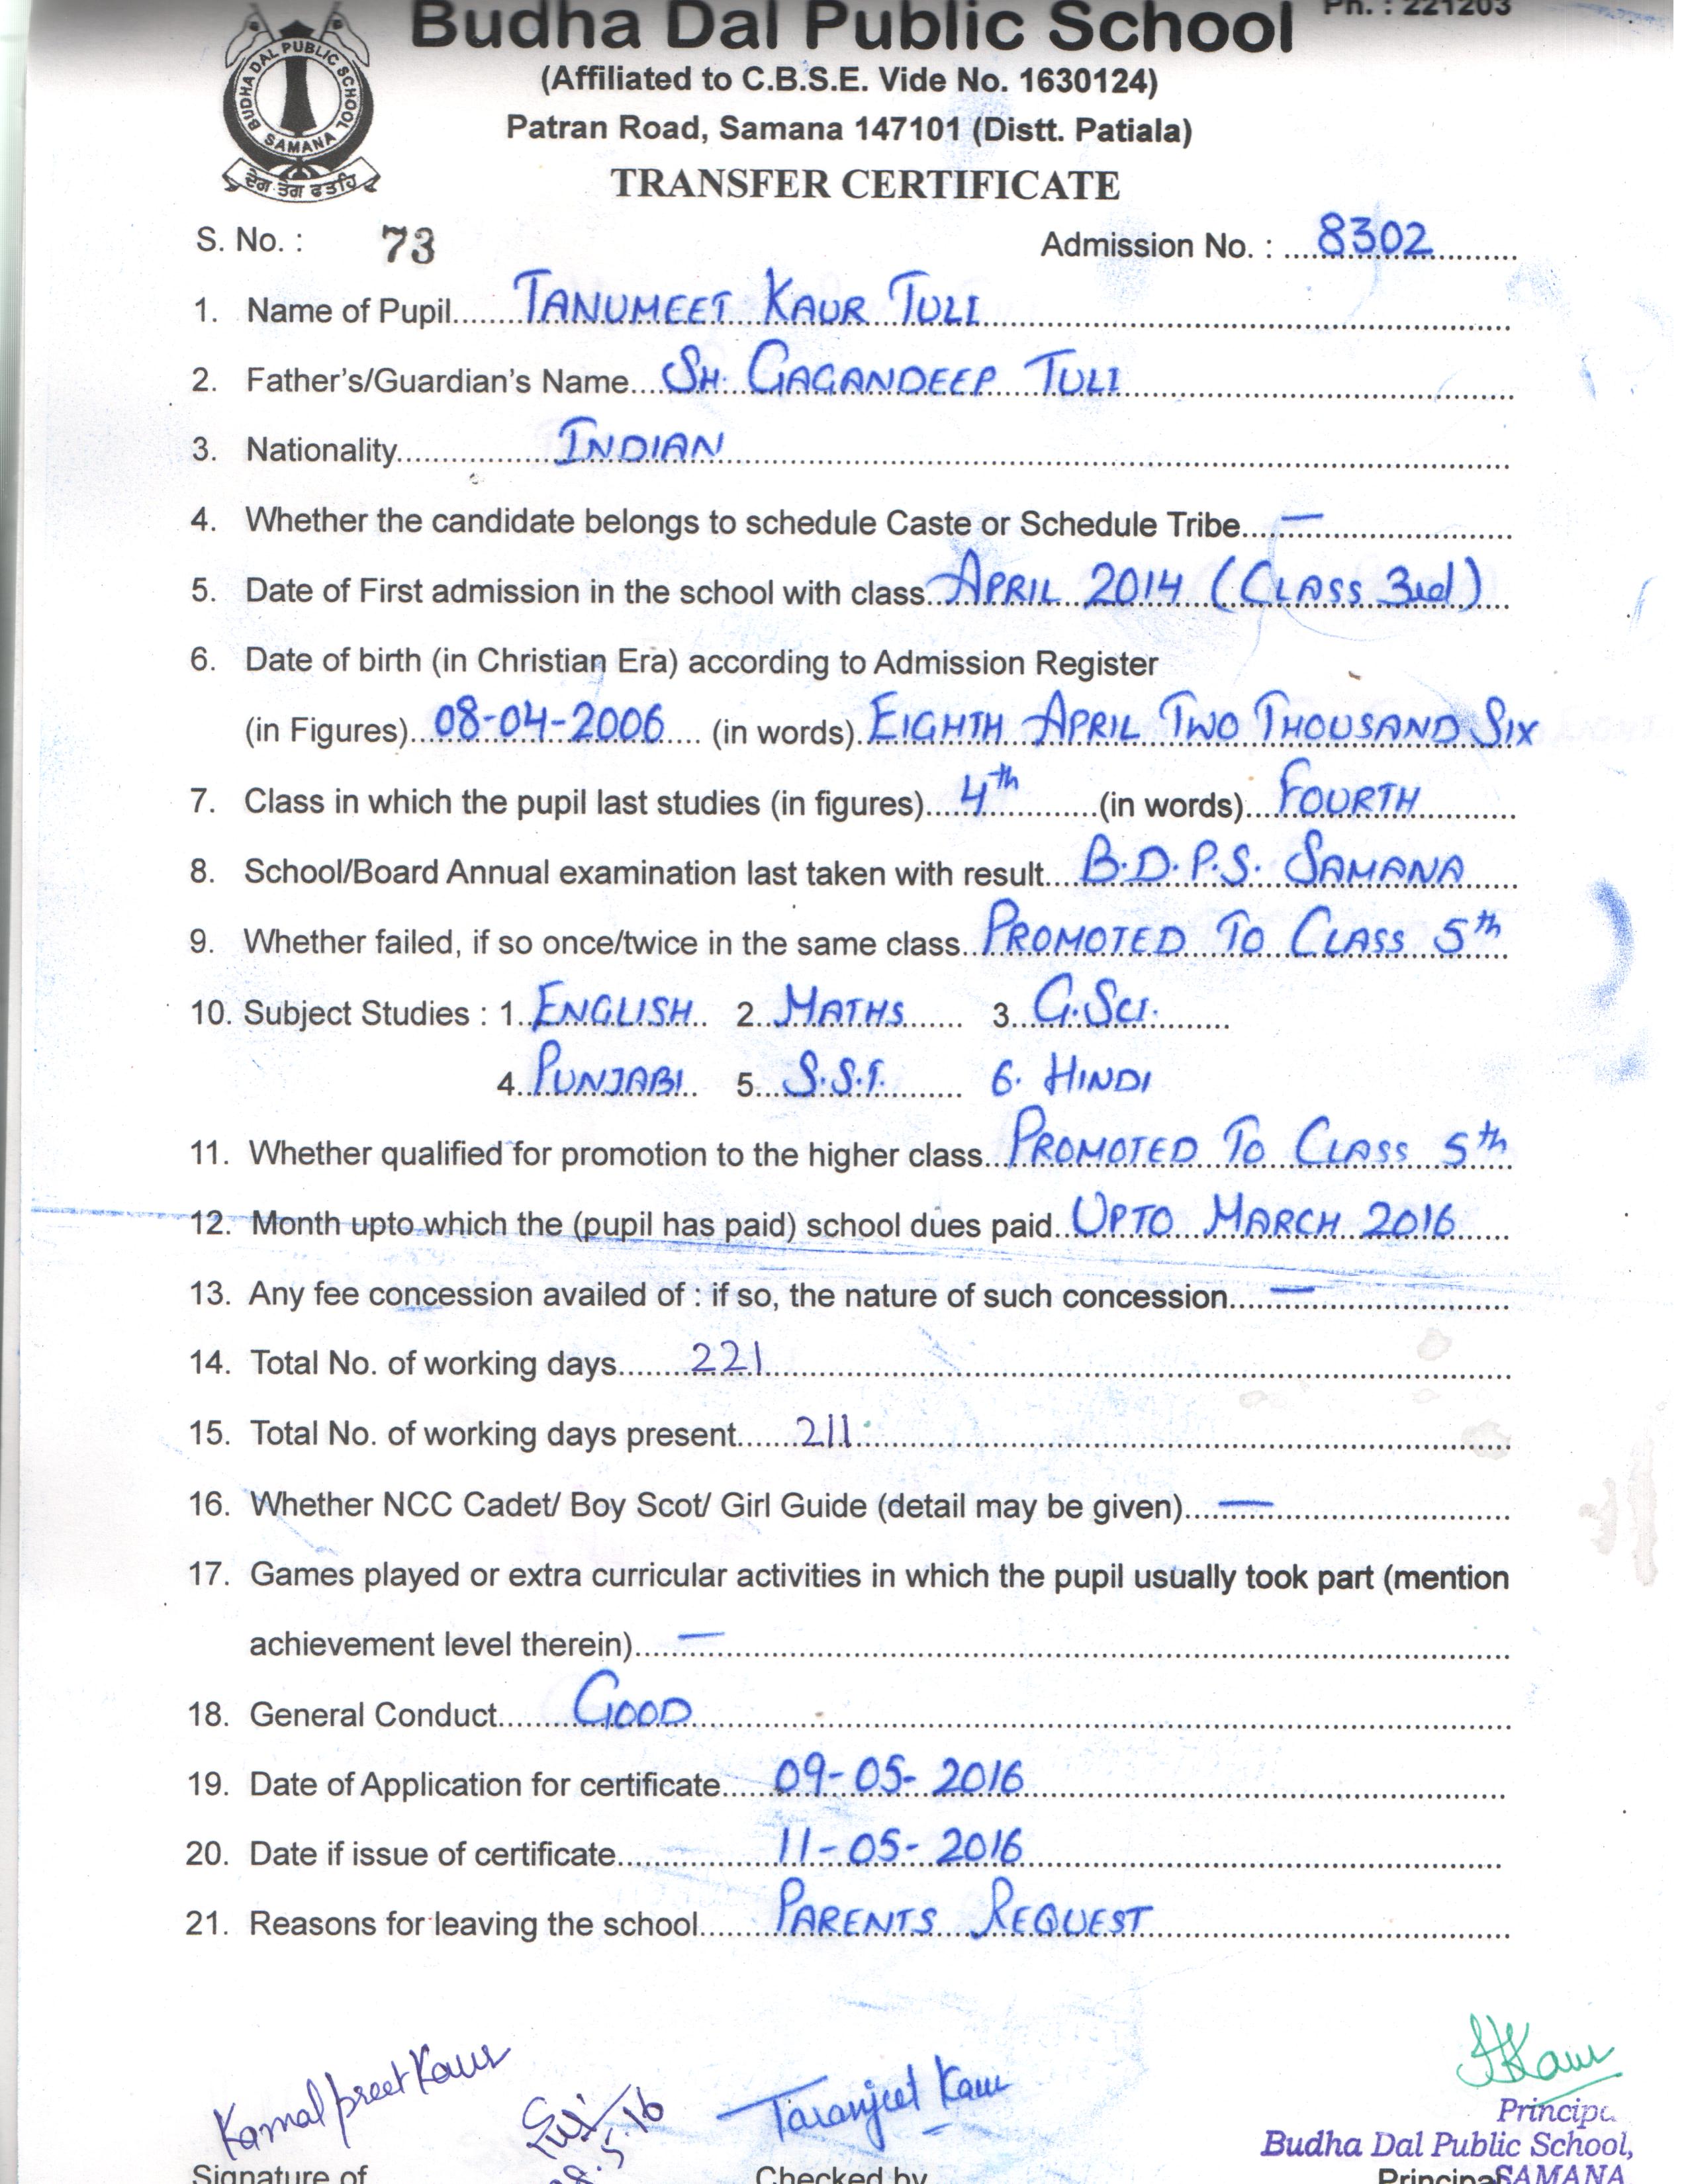 Budha Dal Public School Ph. : 221203
BUDHA DAL PUBLIC SCHOOL
SAMANA
ਦੇਗ ਤੇਗ ਫਤਹਿ
(Affiliated to C.B.S.E. Vide No. 1630124)
Patran Road, Samana 147101 (Distt. Patiala)
TRANSFER CERTIFICATE
S. No. : 73 Admission No. : 8302
1. Name of Pupil TANUMEET KAUR TULI
2. Father's/Guardian's Name SH. GAGANDEEP TULI
3. Nationality INDIAN
4. Whether the candidate belongs to schedule Caste or Schedule Tribe —
5. Date of First admission in the school with class APRIL 2014 (CLASS 3rd)
6. Date of birth (in Christian Era) according to Admission Register
(in Figures) 08-04-2006 (in words) EIGHTH APRIL TWO THOUSAND SIX
7. Class in which the pupil last studies (in figures) 4th (in words) FOURTH
8. School/Board Annual examination last taken with result B.D.P.S. SAMANA
9. Whether failed, if so once/twice in the same class PROMOTED TO CLASS 5th
10. Subject Studies : 1. ENGLISH 2. MATHS 3. G.SCI.
4. PUNJABI 5. S.S.T. 6. HINDI
11. Whether qualified for promotion to the higher class PROMOTED TO CLASS 5th
12. Month upto which the (pupil has paid) school dues paid UPTO MARCH 2016
13. Any fee concession availed of : if so, the nature of such concession —
14. Total No. of working days 221
15. Total No. of working days present 211
16. Whether NCC Cadet/ Boy Scot/ Girl Guide (detail may be given) —
17. Games played or extra curricular activities in which the pupil usually took part (mention
achievement level therein) —
18. General Conduct GOOD
19. Date of Application for certificate 09-05-2016
20. Date if issue of certificate 11-05-2016
21. Reasons for leaving the school PARENTS REQUEST
Kamalpreet Kaur Taranjeet Kaur Kaur
Principa
Budha Dal Public School,
Signature of Checked by Principal SAMANA